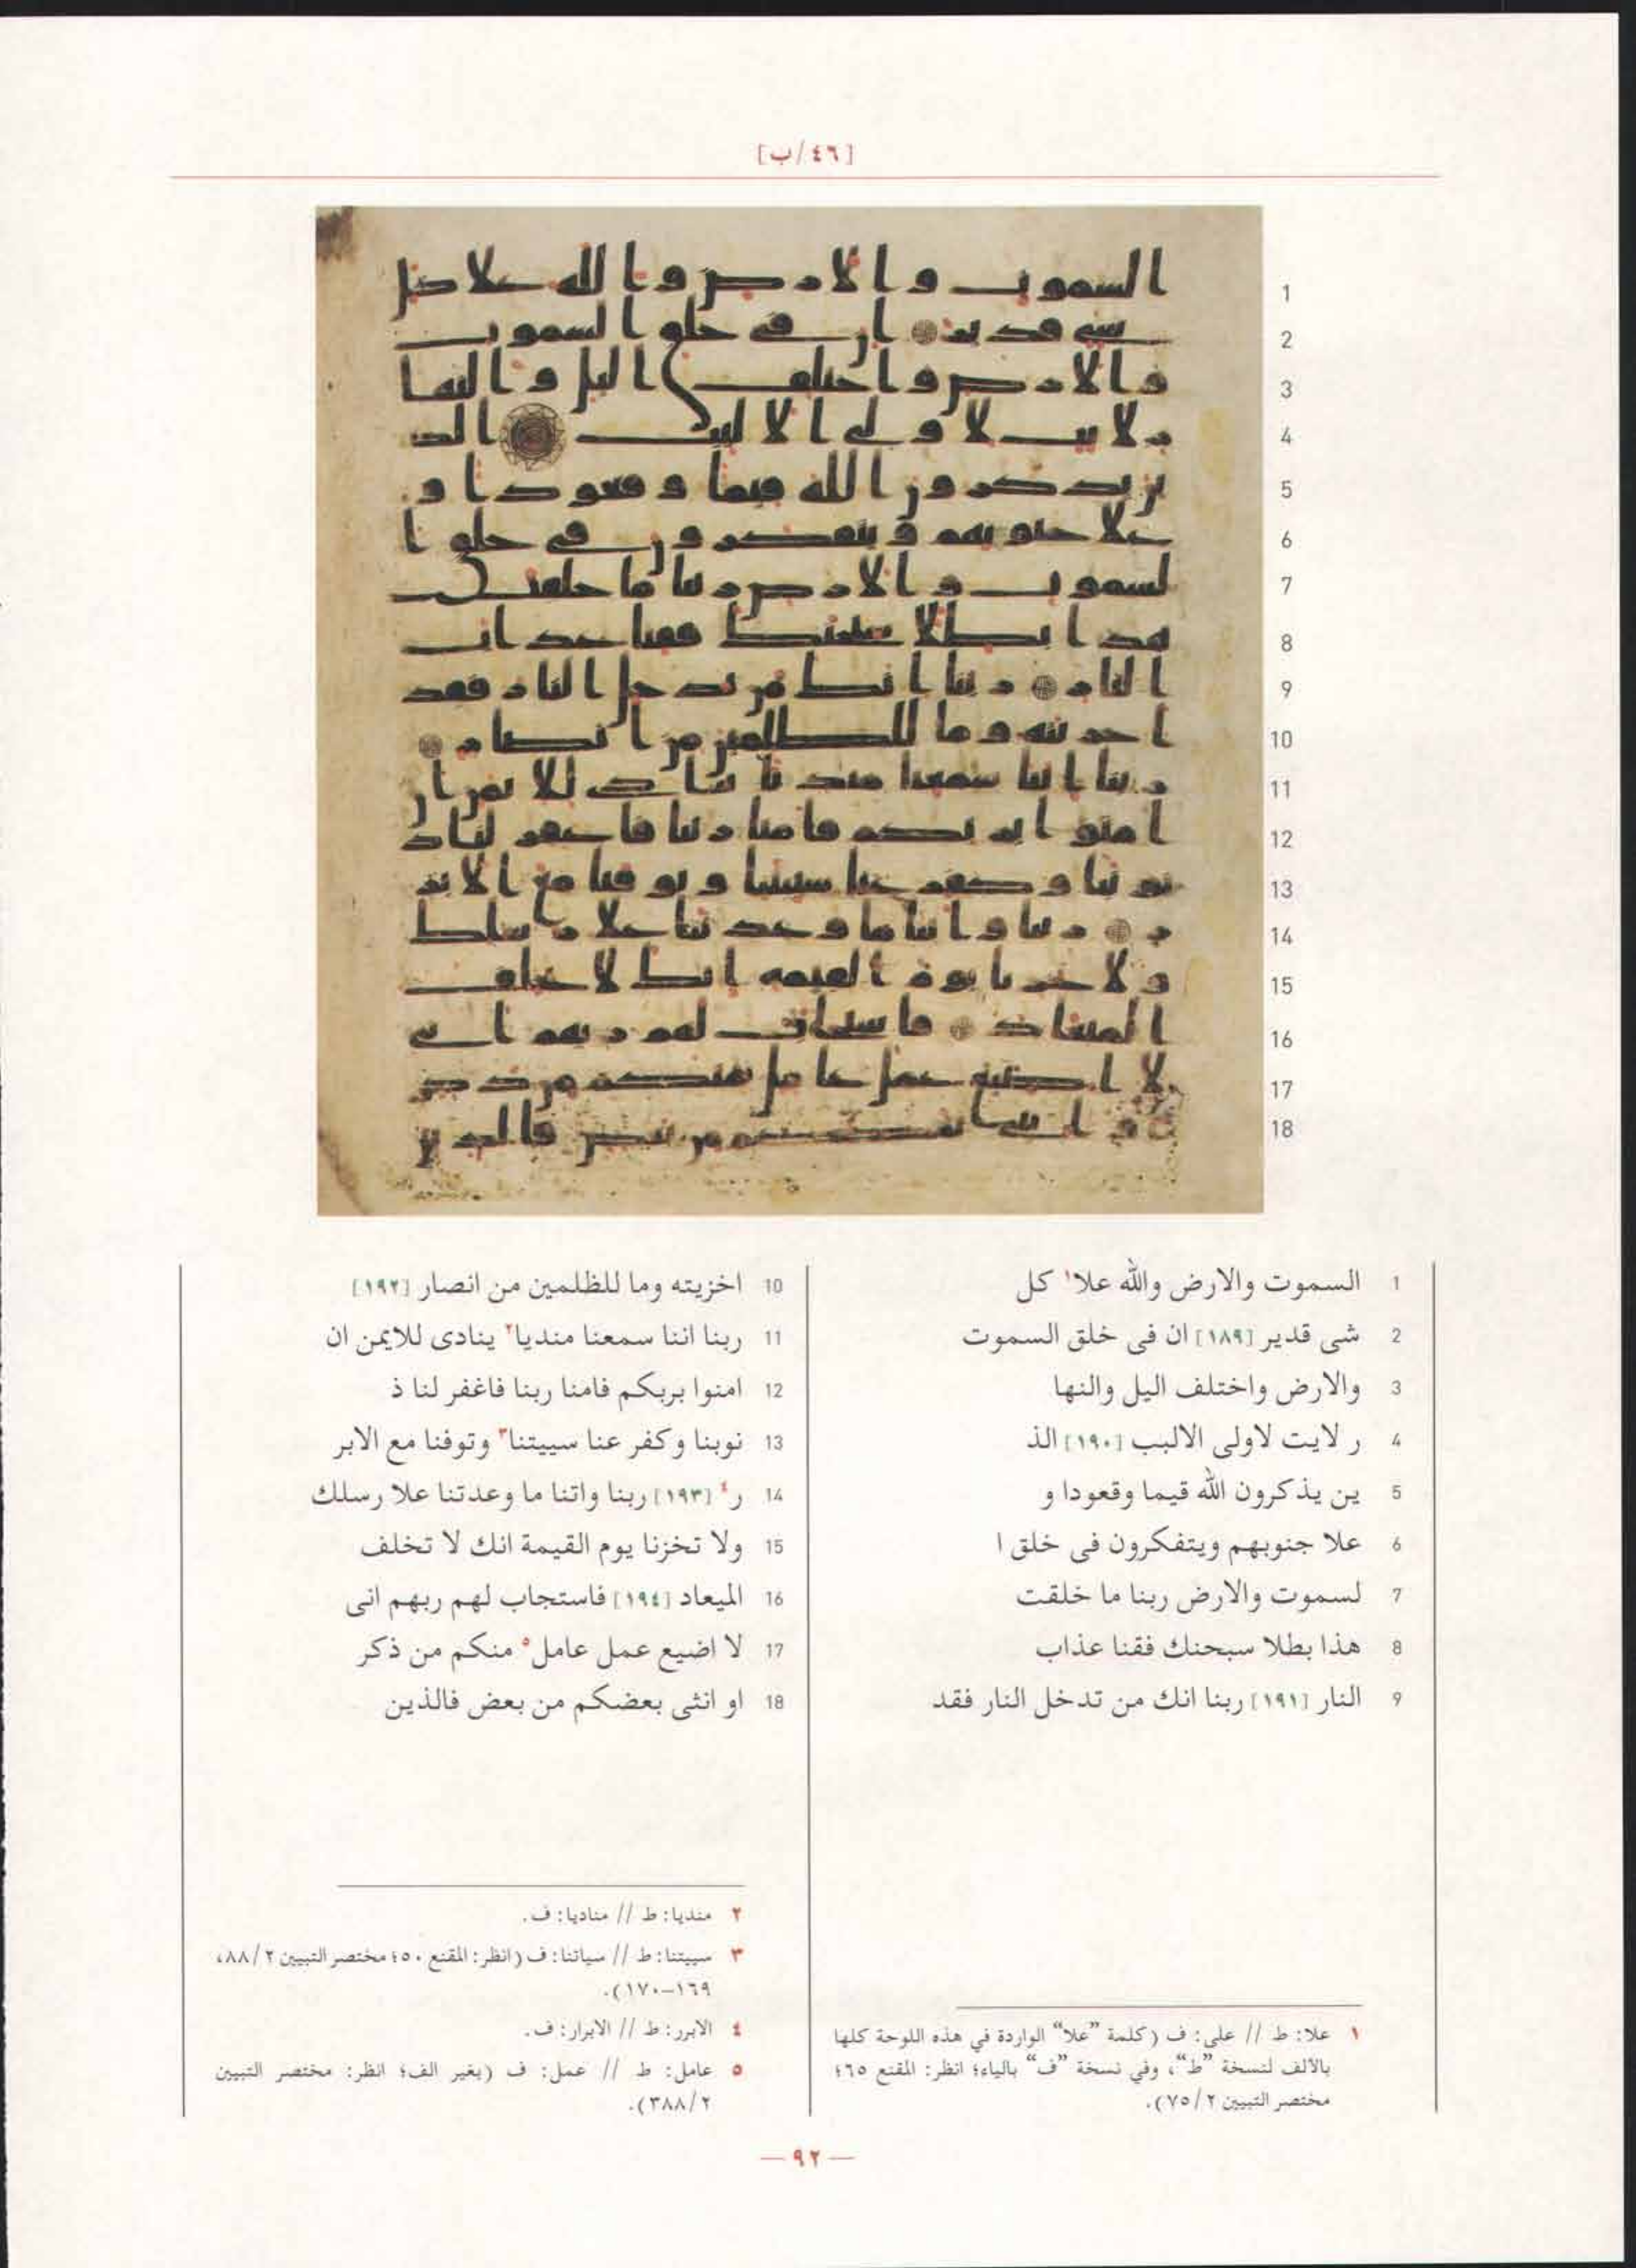 [٤٦/ب]
1 السموت والارض والله علا١ كل
2 شى قدير [١٨٩] ان فى خلق السموت
3 والارض واختلف اليل والنها
4 ر لايت لاولى الالبب [١٩٠] الذ
5 ين يذكرون الله قيما وقعودا و
6 علا جنوبهم ويتفكرون فى خلق ا
7 لسموت والارض ربنا ما خلقت
8 هذا بطلا سبحنك فقنا عذاب
9 النار [١٩١] ربنا انك من تدخل النار فقد
10 اخزيته وما للظلمين من انصار [١٩٢]
11 ربنا اننا سمعنا منديا٢ ينادى للايمن ان
12 امنوا بربكم فامنا ربنا فاغفر لنا ذ
13 نوبنا وكفر عنا سييتنا٣ وتوفنا مع الابر
14 ر٤ [١٩٣] ربنا واتنا ما وعدتنا علا رسلك
15 ولا تخزنا يوم القيمة انك لا تخلف
16 الميعاد [١٩٤] فاستجاب لهم ربهم انى
17 لا اضيع عمل عامل٥ منكم من ذكر
18 او انثى بعضكم من بعض فالذين
١ علا: ط // على: ف (كلمة ”علا“ الواردة في هذه اللوحة كلها
بالألف لنسخة ”ط“، وفي نسخة ”ف“ بالياء؛ انظر: المقنع ٦٥؛
مختصر التبيين ٧٥/٢).
٢ منديا: ط // مناديا: ف.
٣ سييتنا: ط // سياتنا: ف (انظر: المقنع ٥٠؛ مختصر التبيين ٨٨/٢،
١٦٩–١٧٠).
٤ الابرر: ط // الابرار: ف.
٥ عامل: ط // عمل: ف (بغير الف؛ انظر: مختصر التبيين
٣٨٨/٢).
— ٩٢ —